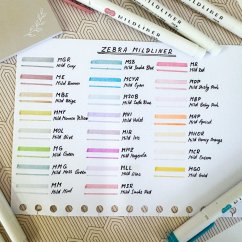 MILDLINER
ZEBRA MILDLINER
MGR
Mild Gray
ME
Mild Brown
MBE
Mild Beige
MMY
Mild Marron Yellow
MOL
Mild Olive
MG
Mild Green
MMG
Mild Moss Green
MM
Mild Navy
MSB
Mild Smoke Blue
MCYA
Mild Cyan
MSOB
Mild Soda Blue
MVI
Mild Violet
MMZ
Mild Magenta
MLL
Mild Lilac
MSR
Mild Smoke Red
MR
Mild Red
MDP
Mild Dusty Pink
MBP
Mild Baby Pink
MAP
Mild Apricot
MHOR
Mild Honey Orange
MCR
Mild Cream
MGO
Mild Gold